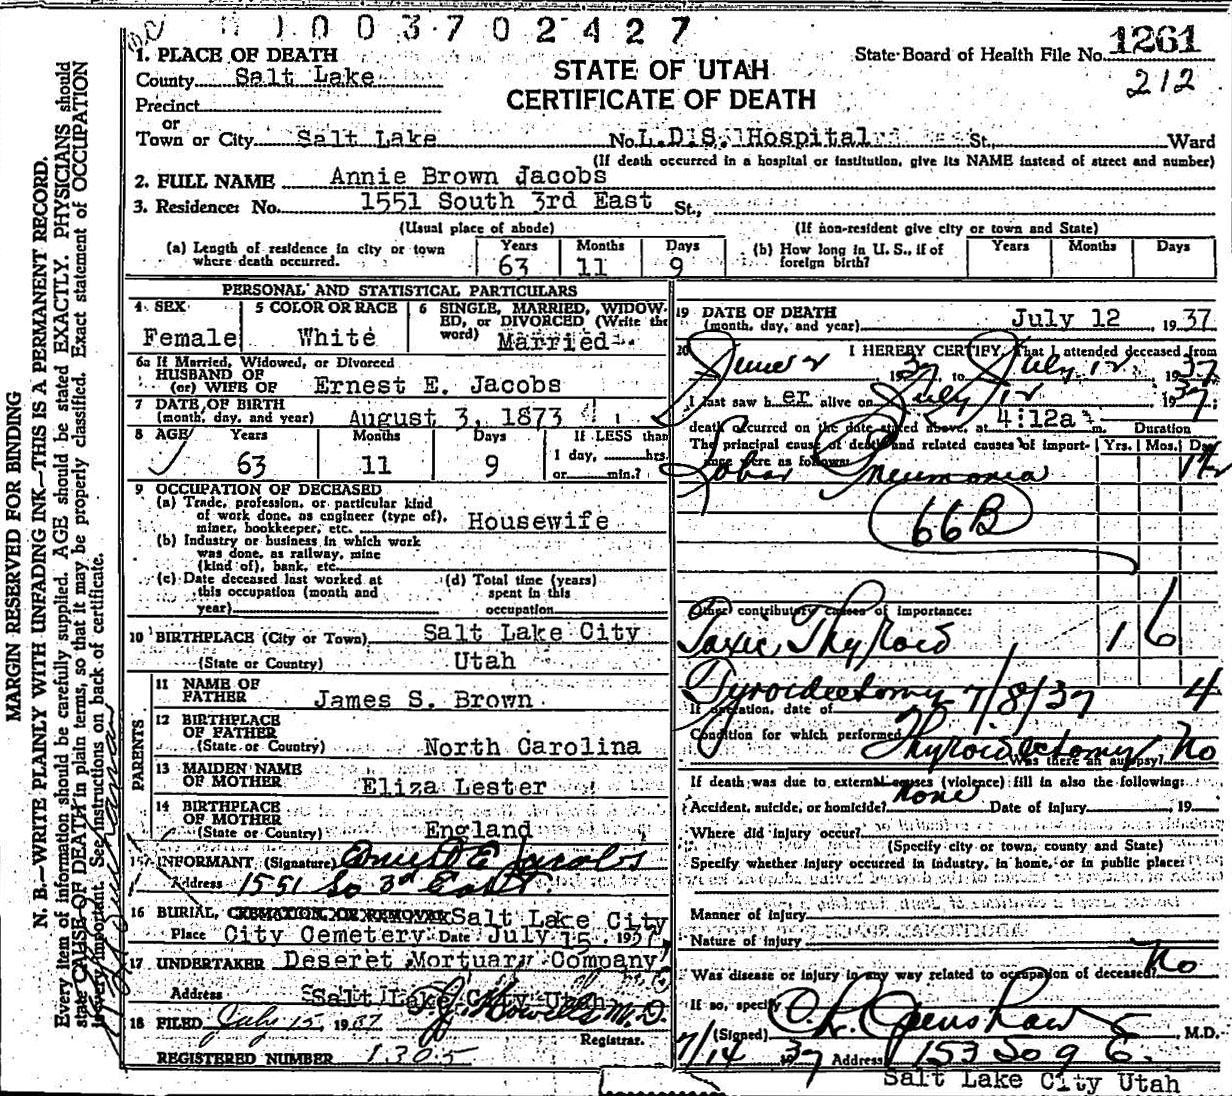 1003702427
1. PLACE OF DEATH
County Salt Lake
Precinct
or
Town or City Salt Lake No. L.D.S. Hospital St., Ward
(If death occurred in a hospital or institution, give its NAME instead of street and number)
STATE OF UTAH
CERTIFICATE OF DEATH
State Board of Health File No. 1261
212
2. FULL NAME Annie Brown Jacobs
3. Residence: No. 1551 South 3rd East St.,
(Usual place of abode) (If non-resident give city or town and State)
(a) Length of residence in city or town where death occurred. Years 63 Months 11 Days 9
(b) How long in U. S., if of foreign birth? Years Months Days
MARGIN RESERVED FOR BINDING
N. B.—WRITE PLAINLY WITH UNFADING INK—THIS IS A PERMANENT RECORD.
Every item of information should be carefully supplied. AGE should be stated EXACTLY. PHYSICIANS should
state CAUSE OF DEATH in plain terms, so that it may be properly classified. Exact statement of OCCUPATION
is very important. See instructions on back of certificate.
PERSONAL AND STATISTICAL PARTICULARS
4 SEX Female
5 COLOR OR RACE White
6 SINGLE, MARRIED, WIDOWED, or DIVORCED (Write the word) Married
6a If Married, Widowed, or Divorced
HUSBAND OF
(or) WIFE OF Ernest E. Jacobs
7 DATE OF BIRTH
(month, day, and year) August 3, 1873
8 AGE Years 63 Months 11 Days 9 If LESS than 1 day, hrs. or min.?
9 OCCUPATION OF DECEASED
(a) Trade, profession, or particular kind
of work done, as engineer (type of),
miner, bookkeeper, etc. Housewife
(b) Industry or business in which work
was done, as railway, mine
(kind of), bank, etc.
(c) Date deceased last worked at
this occupation (month and
year)
(d) Total time (years)
spent in this
occupation
10 BIRTHPLACE (City or Town) Salt Lake City
(State or Country) Utah
PARENTS
11 NAME OF
FATHER James S. Brown
12 BIRTHPLACE
OF FATHER
(State or Country) North Carolina
13 MAIDEN NAME
OF MOTHER Eliza Lester
14 BIRTHPLACE
OF MOTHER
(State or Country) England
15 INFORMANT (Signature) Ernest E. Jacobs
Address 1551 So 3rd East.
16 BURIAL, CREMATION OR REMOVAL Salt Lake City
Place City Cemetery Date July 15, 1937
17 UNDERTAKER Deseret Mortuary Company
Address Salt Lake City Utah
18 FILED July 15, 1937
Registrar.
REGISTERED NUMBER 1305
19 DATE OF DEATH
(month, day, and year) July 12, 1937
20 I HEREBY CERTIFY, That I attended deceased from
June 2 1937 to July 12 1937
I last saw her alive on July 12 1937
death occurred on the date stated above, at 4:12a m. Duration
The principal cause of death and related causes of importance were as follows: Yrs. Mos. Days
Lobar Pneumonia
66B
Other contributory causes of importance:
Toxic Thyroid 1 6
Tyroidectomy 7/8/37 4
If operation, date of
Condition for which performed Thyroidectomy
Was there an autopsy? No
If death was due to external causes (violence) fill in also the following:
Accident, suicide, or homicide? None Date of injury 19
Where did injury occur?
(Specify city or town, county and State)
Specify whether injury occurred in industry, in home, or in public place:
Manner of injury
Nature of injury
Was disease or injury in any way related to occupation of deceased? No
If so, specify
(Signed) O. R. Openshaw M.D.
7/14 37 Address 153 So 9 E.
Salt Lake City Utah